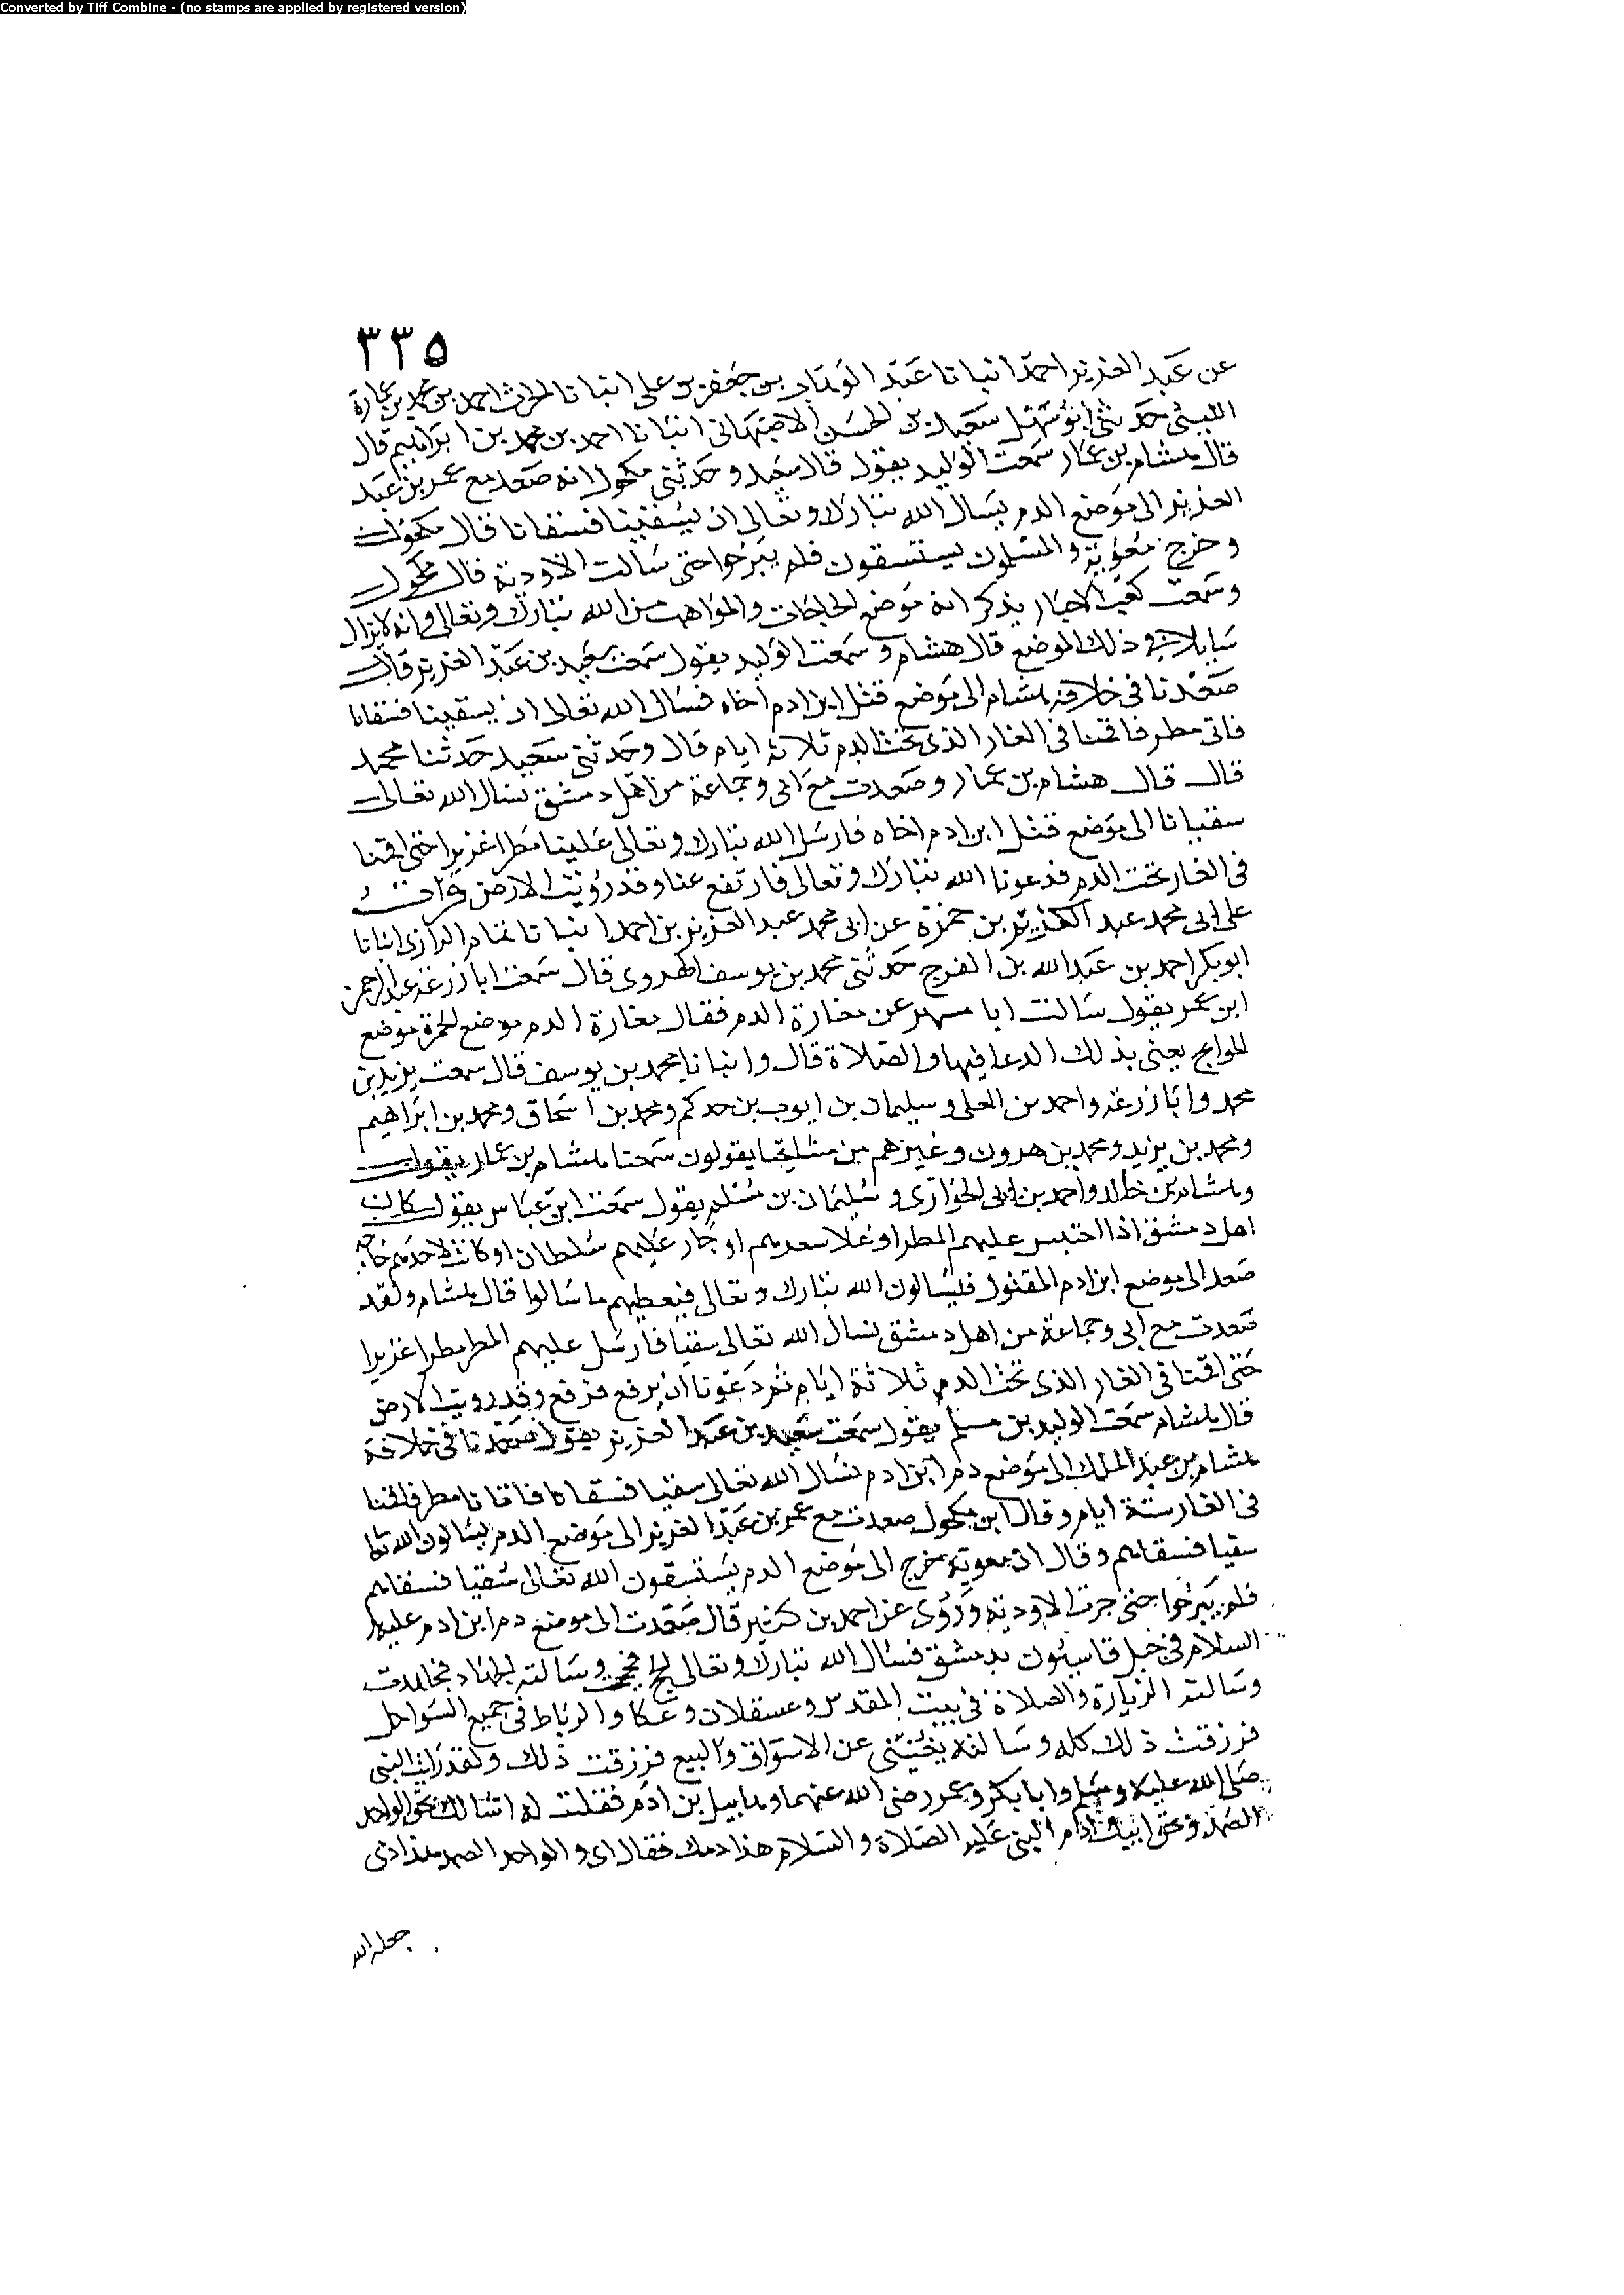 Converted by Tiff Combine - (no stamps are applied by registered version)
٣٣٥
عن عبد العزيز احمد انبانا عبد الوهاب بن جعفر بن على انبانا الحرث احمد بن محمد بن عمارة
الليثى حدثنى ابو سهل سعيد بن الحسن الاصبهانى انبانا احمد بن محمد بن ابراهيم قال
قال هشام بن عمار سمعت الوليد يقول قال سعيد وحدثنى مكحول انه صعد مع عمر بن عبد
العزيز الى موضع الدم يسال الله تبارك وتعالى ان يسقينا فسقانا قال مكحول
وخرج معوية والمسلمون يستسقون فلم يبرحوا حتى سالت الاودية قال مكحول
وسمعت كعب الاحبار يذكر انه موضع الحاجات والمواهب من الله تبارك وتعالى وانه لا يزال
سايلا فى ذلك الموضع قال هشام وسمعت الوليد يقول سمعت سعيد بن عبد العزيز قال
صعدنا فى خلافة هشام الى موضع قتل ابن ادم اخاه فسال الله تعالى ان يسقينا فسقانا
فاتى مطر فاقمنا فى الغار الذى تحت الدم ثلاثة ايام قال وحدثنى سعيد حدثنا محمد
قال قال هشام بن عمار وصعدت مع ابى وجماعة من اهل دمشق نسال الله تعالى
سقيانا الى موضع قتل ابن ادم اخاه فارسل الله تبارك وتعالى علينا مطرا غزيرا حتى اقمنا
فى الغار تحت الدم فدعونا الله تبارك وتعالى فارتفع عنا وقد رويت الارض قرات
على ابى محمد عبد الكريم بن حمزة عن ابى محمد عبد العزيز بن احمد انبانا تمام الرازى انبانا
ابو بكر احمد بن عبد الله بن الفرج حدثنى محمد بن يوسف الهروى قال سمعت ابا زرعة عبد الرحمن
ابن عمر يقول سالت ابا مسهر عن مغارة الدم فقال مغارة الدم موضع الحمرة موضع
الحوايج يعنى بذلك الدعا فيها والصلاة قال وانبانا محمد بن يوسف قال سمعت يزيد بن
محمد وابا زرعة واحمد بن المعلى وسليمان بن ايوب بن حدكم ومحمد بن اسحاق ومحمد بن ابراهيم
ومحمد بن يزيد ومحمد بن هرون وغيرهم من مشايخنا يقولون سمعنا هشام بن عمار يقول
وهشام بن خالد واحمد بن ابى الحوارى وسليمان بن مسلم يقول سمعت ابن عباس يقول كان
اهل دمشق اذا احتبس عليهم المطر او غلا سعرهم او جار عليهم سلطان او كانت لاحدهم حاجة
صعد الى موضع ابن ادم المقتول فليسالون الله تبارك وتعالى فيعطيهم ما سالوا قال هشام ولقد
صعدت مع ابى وجماعة من اهل دمشق نسال الله تعالى سقيا فارسل عليهم المطر مطرا غزيرا
حتى اقمنا فى الغار الذى تحت الدم ثلاثة ايام ثم دعونا ان يرفع فرفع وقد رويت الارض
قال هشام سمعت الوليد بن مسلم يقول سمعت سعيد بن عبد العزيز يقول صعدنا فى خلافة
هشام بن عبد الملك الى موضع دم ابن ادم نسال الله تعالى سقيا فسقانا فاتانا مطر فاقمنا
فى الغار ستة ايام وقال ابن مكحول صعدت مع عمر بن عبد العزيز الى موضع الدم يسالون الله تعالى
سقيا فسقاهم وقال ان معوية خرج الى موضع الدم يستسقون الله تعالى سقيا فسقاهم
فلم يبرحوا حتى جرت الاودية وروى عن احمد بن كثير قال صعدت الى موضع دم ابن ادم عليه
السلام فى جبل قاسيون بدمشق فسال الله تبارك وتعالى الحج فحججت وسالته الجهاد فجاهدت
وسالته الزيارة والصلاة فى بيت المقدس وعسقلان وعكا والرباط فى جميع السواحل
فرزقت ذلك كله وسالته يغنينى عن الاسواق والبيع فرزقت ذلك ولقد رايت النبى
صلى الله عليه وسلم وابا بكر وعمر رضى الله عنهما وهابيل بن ادم فقلت له اسالك بحق الواحد
الصمد وبحق ابيك ادم النبى عليه الصلاة والسلام هذا دمك فقال اى والواحد الصمد هذا دمى
جعله الله